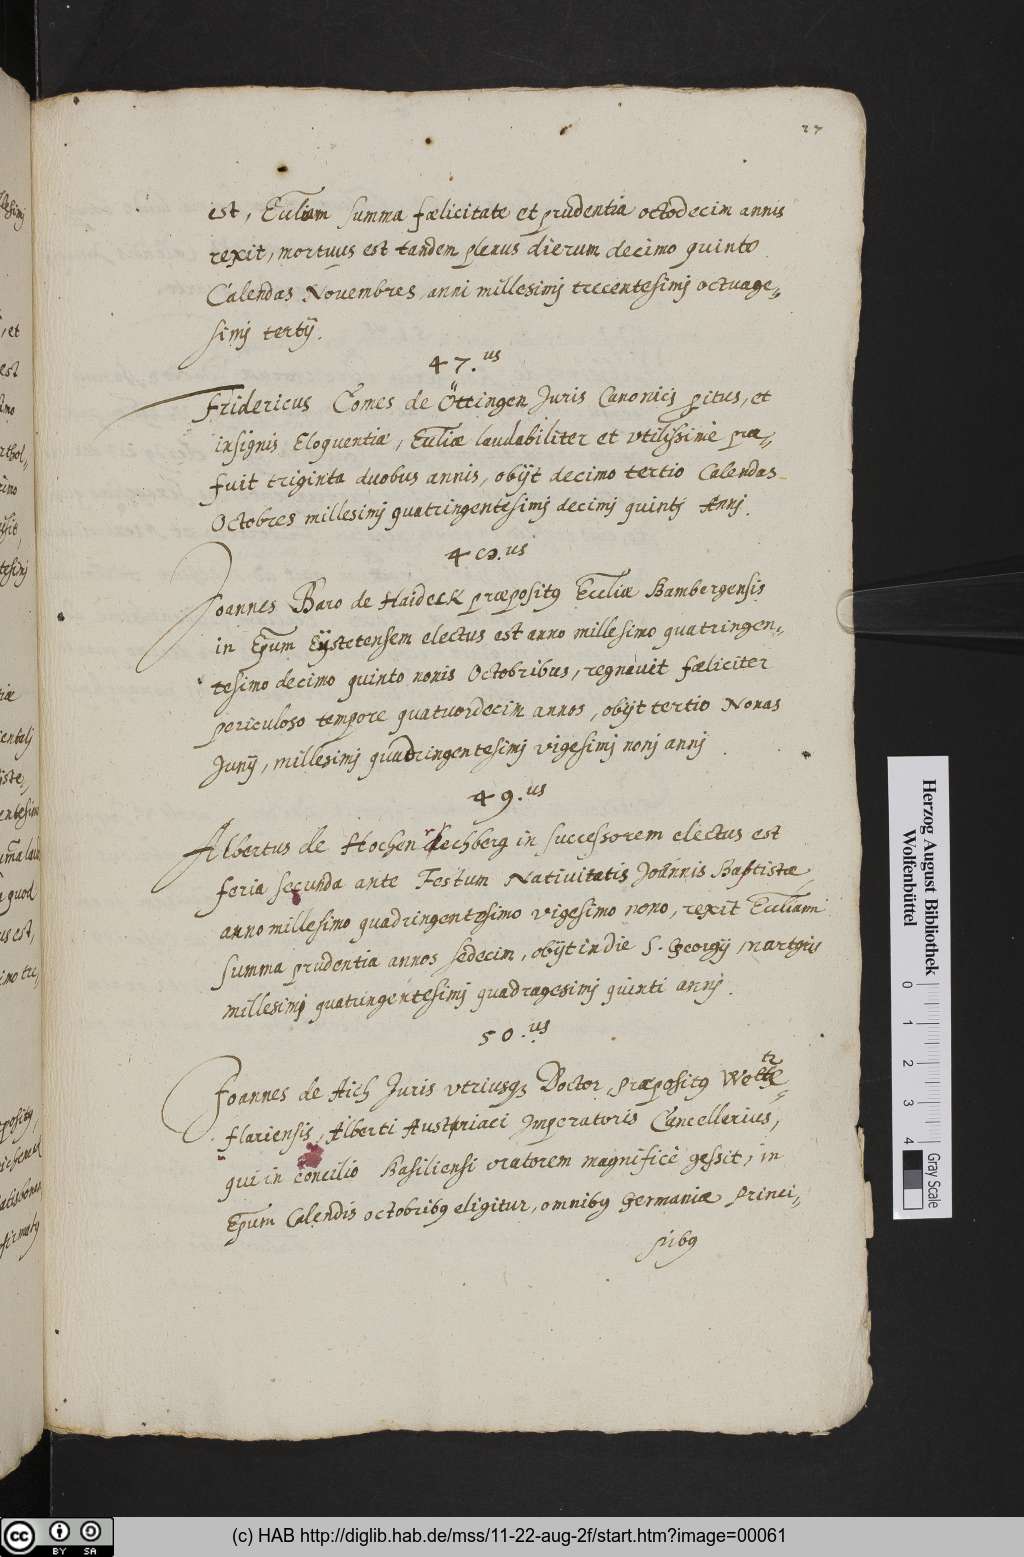 27
est, Eccliam summa fœlicitate et prudentia octodecim annis
rexit, mortuus est tandem plenus dierum decimo quinto
Calendas Novembres, anni millesimj trecentesimj octuage„
simj tertij.
47.us
Fridericus Comes de Öttingen Juris Canonicj pitus, et
insignis Eloquentiæ, Eccliæ laudabiliter et vtilissimè præ„
fuit triginta duobus annis, obijt decimo tertio Calendas
Octobres millesimj quatringentesimj decimj quintj Annj.
48.us
Joannes Baro de Haideck præpositg Eccliæ Bambergensis
in Epum Eystetensem electus est anno millesimo quatringen„
tesimo decimo quinto nonis Octobribus, regnavit fœliciter
periculoso tempore quatuordecim annos, obijt tertio Nonas
Junij, millesimj quadringentesimj vigesimj nonj annj
49.us
Albertus de Hochenrechberg in successorem electus est
feria secunda ante Festum Nativitatis Joannis Baptistæ,
anno millesimo quadringentesimo vigesimo nono, rexit Eccliam
summa prudentia annos sedecim, obijt in die S. Georgij martyris
millesimj quatringentesimj quadragesimj quinti annj.
50.us
Joannes de Aich Juris vtriusqz Doctor, præpositg
flariensis, Alberti Austriaci Imperatoris Cancellerius,
qui in concilio Basiliensi oratorem magnificè gessit, in
Epum Calendis octobribg eligitur, omnibg Germaniæ Princi„
pibg
Herzog August Bibliothek
Wolfenbüttel
0 1 2 3 4
Gray Scale
cc BY SA
(c) HAB http://diglib.hab.de/mss/11-22-aug-2f/start.htm?image=00061